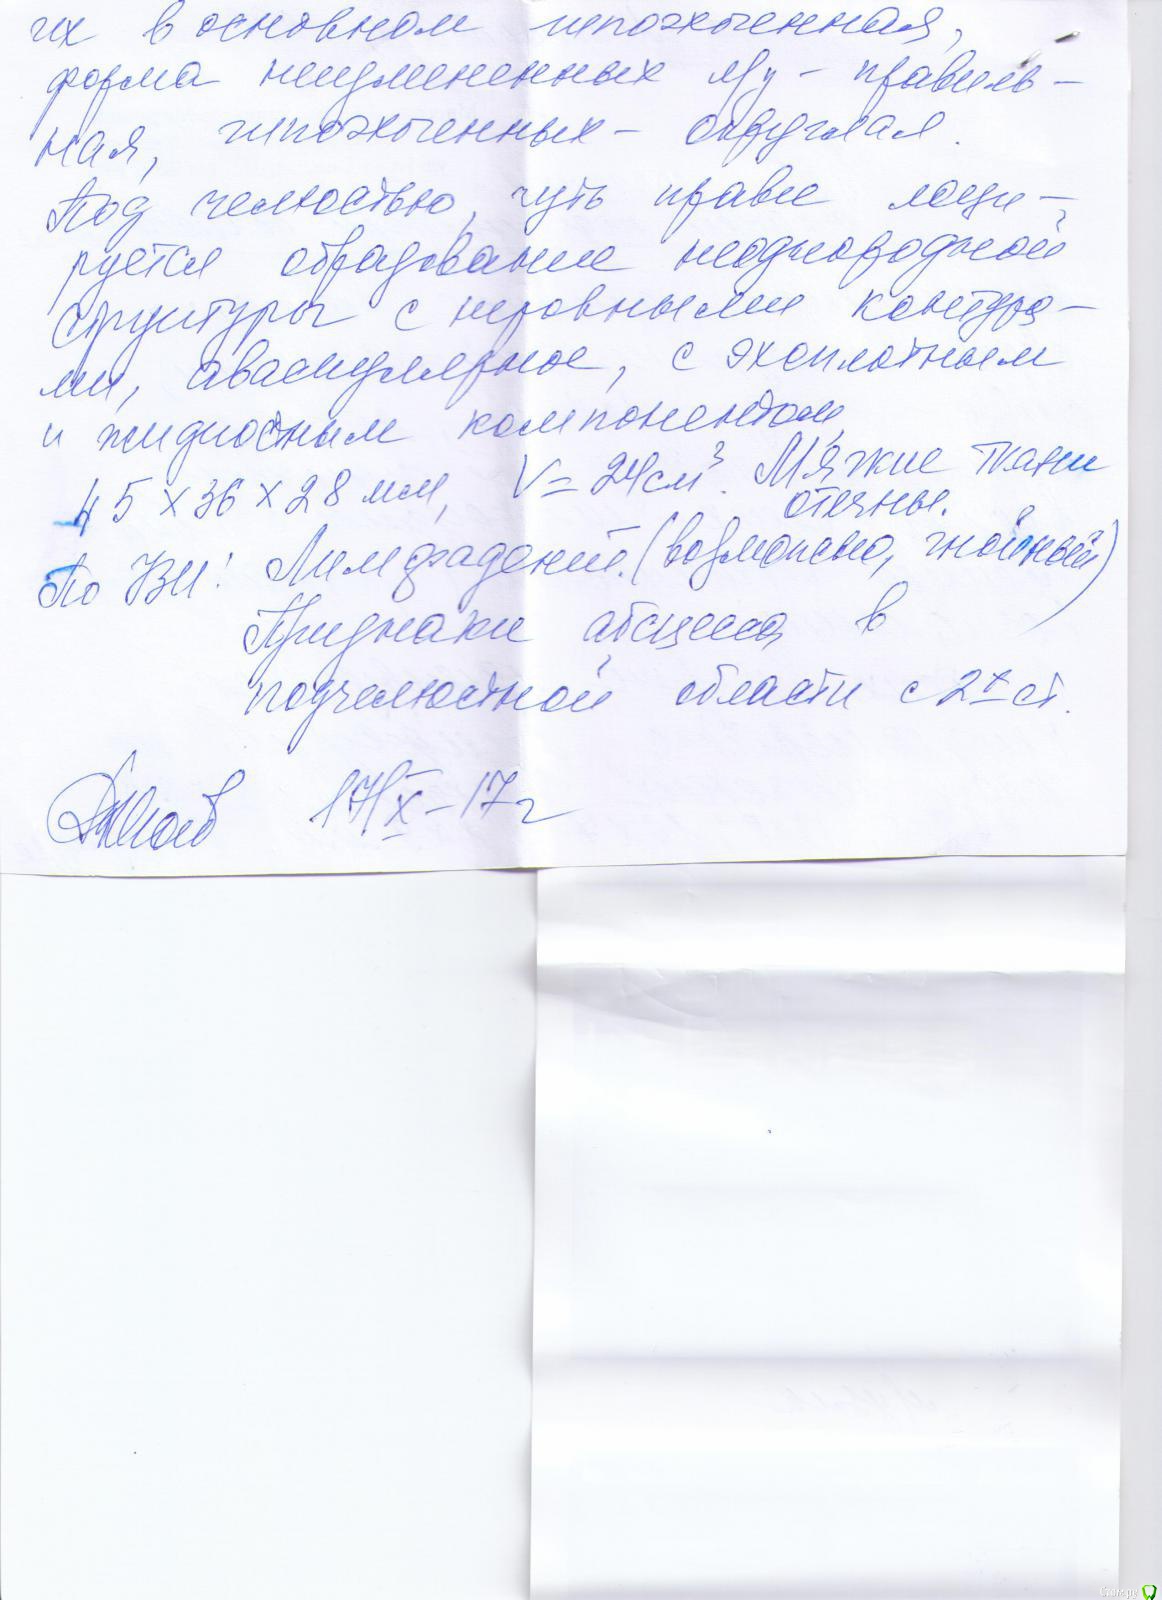 их в основном гипоэхогенная,
форма неизмененных л/у - правиль-
ная, гипоэхогенных - округлая.
Под челюстью, чуть правее лоци-
руется образование неоднородной
структуры с неровными контура-
ми, аваскулярное, с эхоплотным
и жидкостным компонентом,
45 х 36 х 28 мм, V = 24 см³. Мягкие ткани
отечны.
По УЗИ: Лимфаденит. (возможно, гнойный)
Признаки абсцесса в
подчелюстной области с 2х ст.
17/X - 17 г